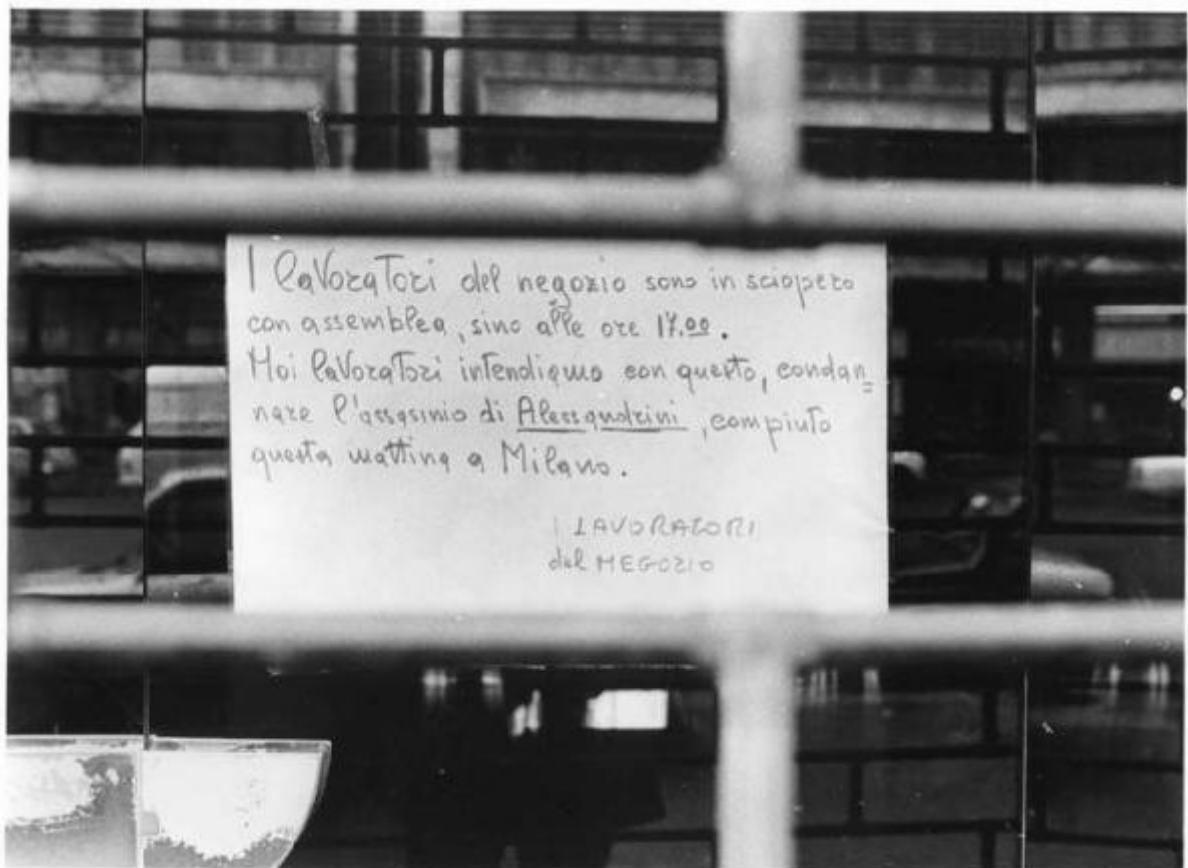 I lavoratori del negozio sono in sciopero
con assemblea, sino alle ore 17.00.
Noi lavoratori intendiamo con questo, condan=
nare l'assasinio di Alessandrini, compiuto
questa mattina a Milano.
I LAVORATORI
del NEGOZIO